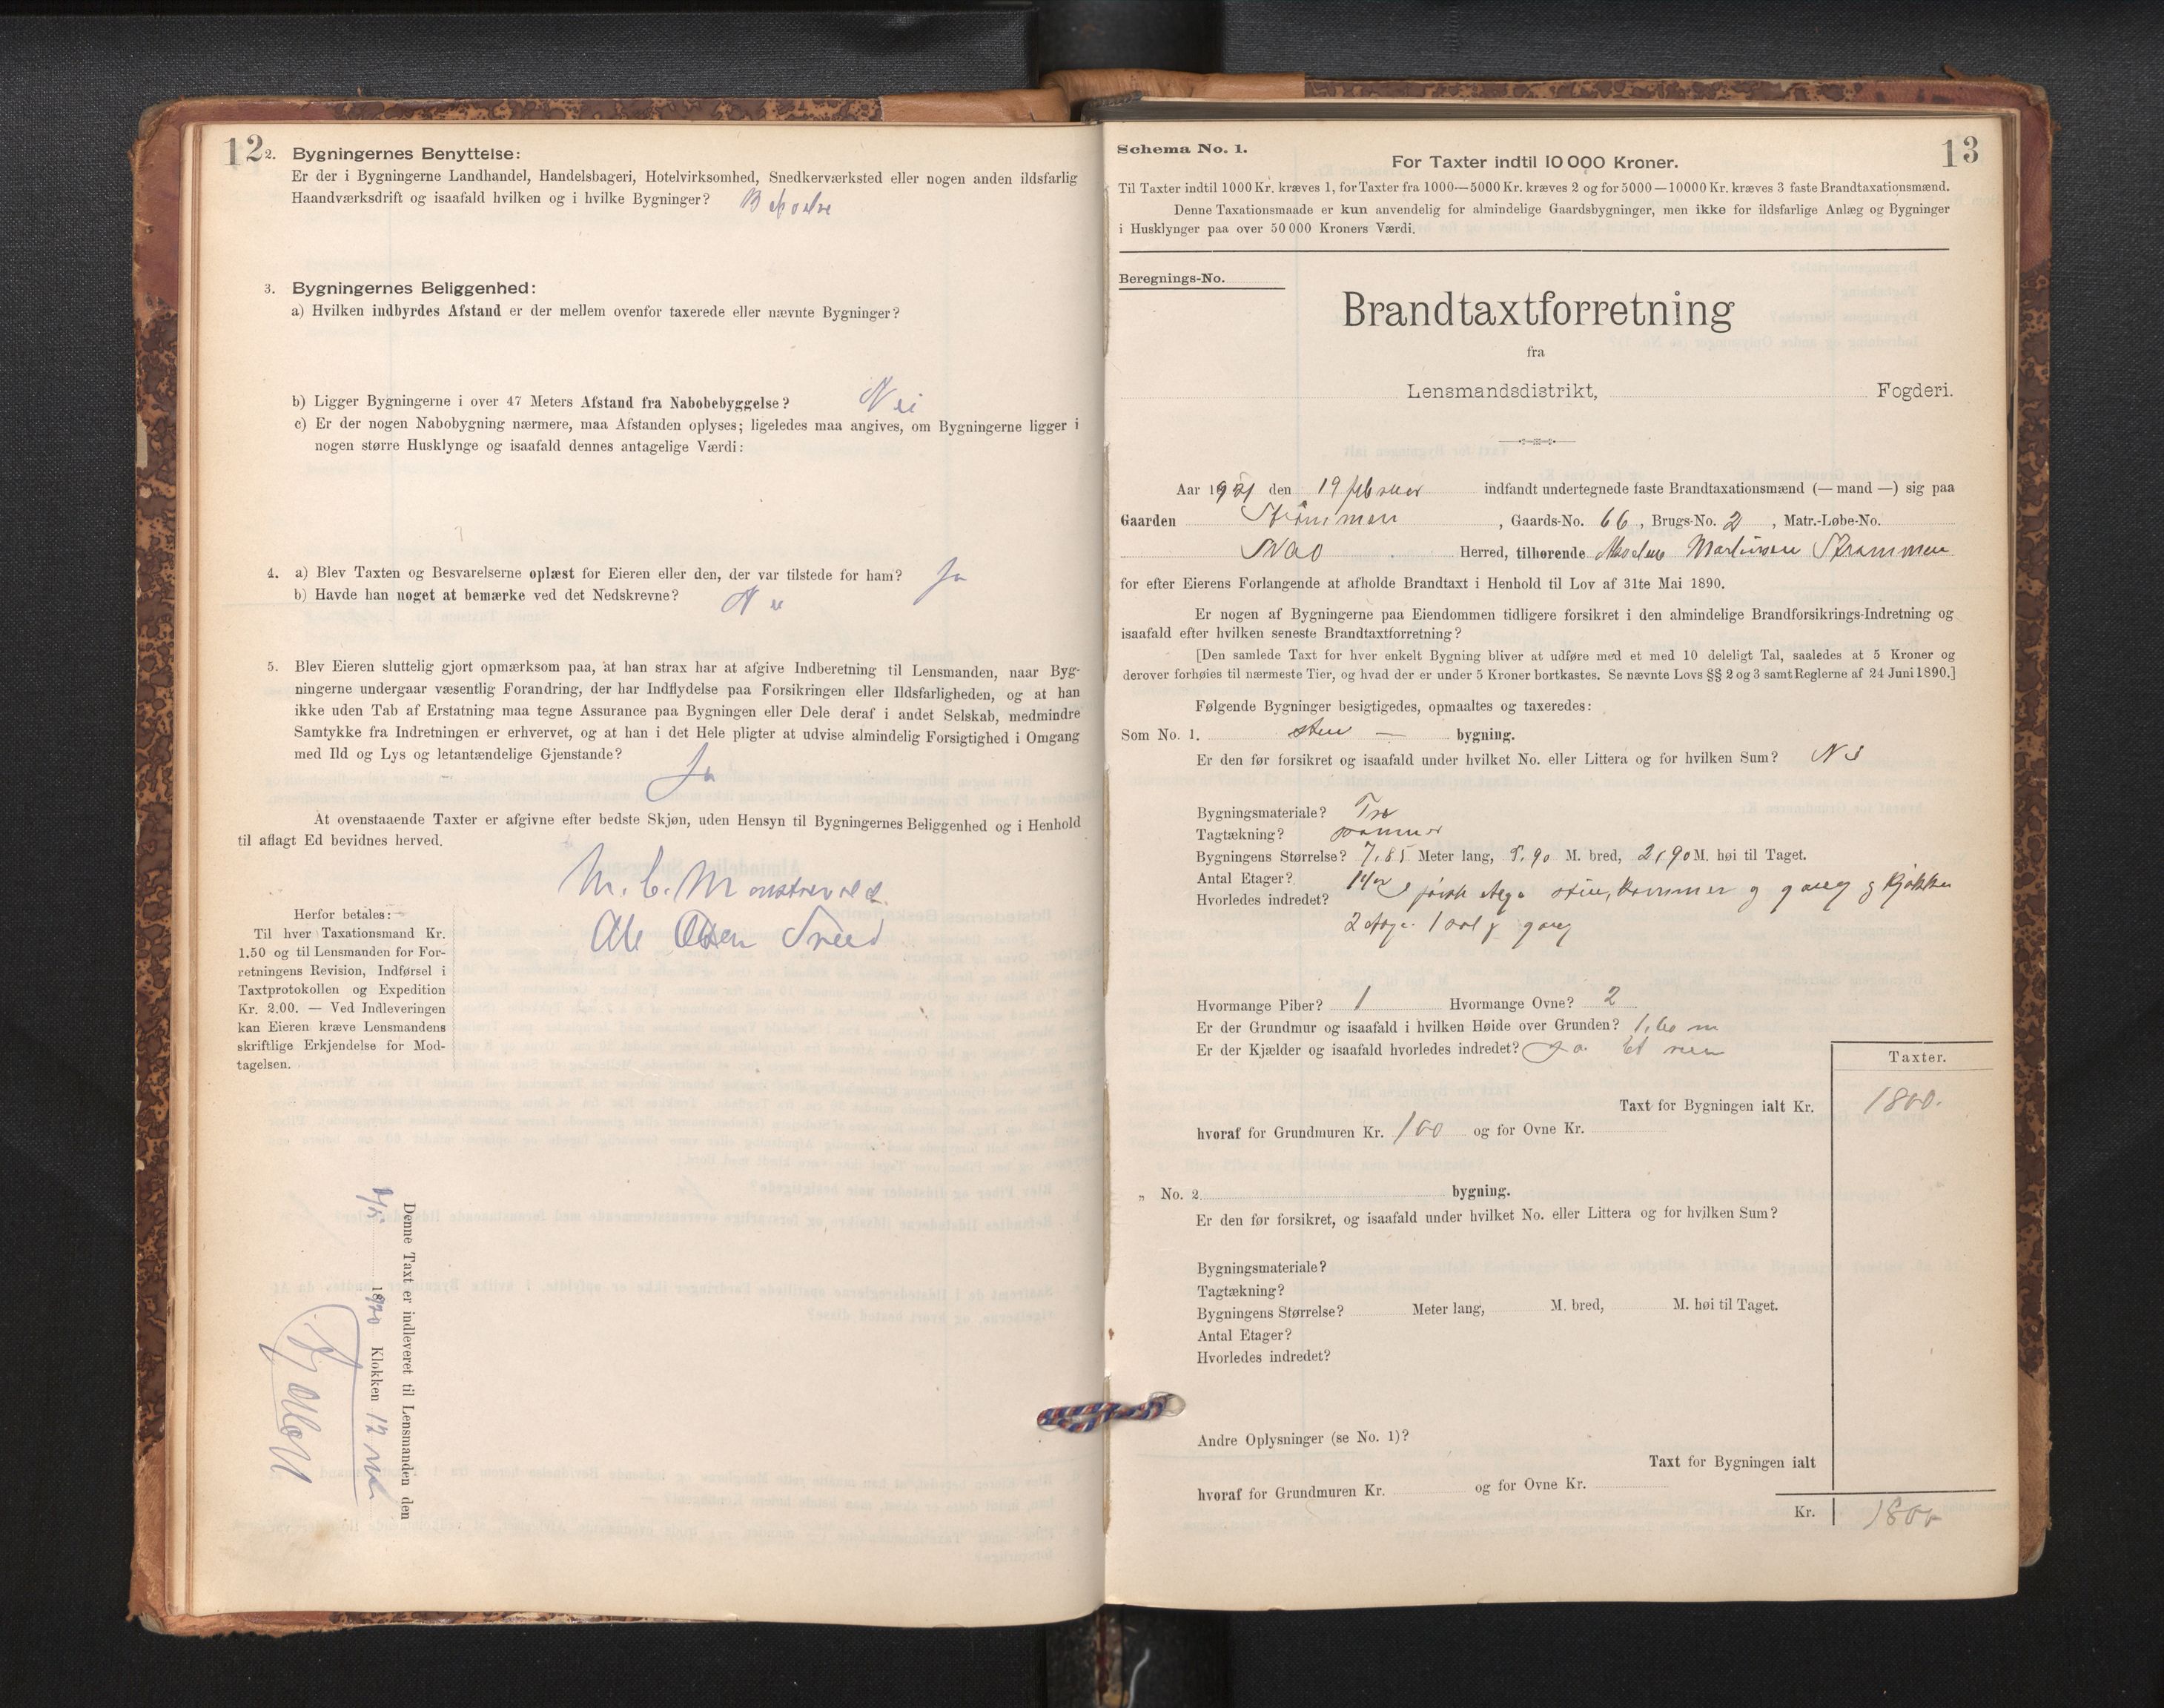 12
2. Bygningernes Benyttelse:
Er der i Bygningerne Landhandel, Handelsbageri, Hotelvirksomhed, Snedkerværksted eller nogen anden ildsfarlig
Haandværksdrift og isaafald hvilken og i hvilke Bygninger?
3. Bygningernes Beliggenhed:
a) Hvilken indbyrdes Afstand er der mellem ovenfor taxerede eller nævnte Bygninger?
b) Ligger Bygningerne i over 47 Meters Afstand fra Nabobebyggelse? Nei
c) Er der nogen Nabobygning nærmere, maa Afstanden oplyses; ligeledes maa angives, om Bygningerne ligger i
nogen større Husklynge og isaafald dennes antagelige Værdi:
4. a) Blev Taxten og Besvarelserne oplæst for Eieren eller den, der var tilstede for ham? Ja
b) Havde han noget at bemærke ved det Nedskrevne? Nei
5. Blev Eieren sluttelig gjort opmærksom paa, at han strax har at afgive Indberetning til Lensmanden, naar Byg-
ningerne undergaar væsentlig Forandring, der har Indflydelse paa Forsikringen eller Ildsfarligheden, og at han
ikke uden Tab af Erstatning maa tegne Assurance paa Bygningen eller Dele deraf i andet Selskab, medmindre
Samtykke fra Indretningen er erhvervet, og at han i det Hele pligter at udvise almindelig Forsigtighed i Omgang
med Ild og Lys og letantændelige Gjenstande? Ja
At ovenstaaende Taxter er afgivne efter bedste Skjøn, uden Hensyn til Bygningernes Beliggenhed og i Henhold
til aflagt Ed bevidnes herved.
M. C. Monstrevold
Ole Olsen
Herfor betales:
Til hver Taxationsmand Kr.
1.50 og til Lensmanden for For-
retningens Revision, Indførsel i
Taxtprotokollen og Expedition
Kr. 2.00. — Ved Indleveringen
kan Eieren kræve Lensmandens
skriftlige Erkjendelse for Mod-
tagelsen.
Denne Taxt er indleveret til Lensmanden den
1920 Klokken 12
13
Schema No. 1.
For Taxter indtil 10 000 Kroner.
Til Taxter indtil 1000 Kr. kræves 1, for Taxter fra 1000—5000 Kr. kræves 2 og for 5000—10000 Kr. kræves 3 faste Brandtaxationsmænd.
Denne Taxationsmaade er kun anvendelig for almindelige Gaardsbygninger, men ikke for ildsfarlige Anlæg og Bygninger
i Husklynger paa over 50 000 Kroners Værdi.
Beregnings-No.
Brandtaxtforretning
fra
Lensmandsdistrikt, Fogderi.
Aar 1921 den 19 februar indfandt undertegnede faste Brandtaxationsmænd (— mand —) sig paa
Gaarden Strømmen, Gaards-No. 66, Brugs-No. 2, Matr.-Løbe-No.
Herred, tilhørende Martinsen Strømmen
for efter Eierens Forlangende at afholde Brandtaxt i Henhold til Lov af 31te Mai 1890.
Er nogen af Bygningerne paa Eiendommen tidligere forsikret i den almindelige Brandforsikrings-Indretning og
isaafald efter hvilken seneste Brandtaxtforretning?
[Den samlede Taxt for hver enkelt Bygning bliver at udføre med et med 10 deleligt Tal, saaledes at 5 Kroner og
derover forhøies til nærmeste Tier, og hvad der er under 5 Kroner bortkastes. Se nævnte Lovs §§ 2 og 3 samt Reglerne af 24 Juni 1890.]
Følgende Bygninger besigtigedes, opmaaltes og taxeredes:
Som No. 1. stue — bygning.
Er den før forsikret og isaafald under hvilket No. eller Littera og for hvilken Sum?
Bygningsmateriale? Træ
Tagtækning? panner
Bygningens Størrelse? 7,85 Meter lang, 5,90 M. bred, 2,90 M. høi til Taget.
Antal Etager?
Hvorledes indredet? stue, kammer og gang og kjøkken
2 1 og gang
Hvormange Piber? 1 Hvormange Ovne? 2
Er der Grundmur og isaafald i hvilken Høide over Grunden? 1,60 m
Er der Kjælder og isaafald hvorledes indredet? Ja. Et rum
Taxter.
Taxt for Bygningen ialt Kr. 1800.
hvoraf for Grundmuren Kr. 100 og for Ovne Kr.
„ No. 2 bygning.
Er den før forsikret, og isaafald under hvilket No. eller Littera og for hvilken Sum?
Bygningsmateriale?
Tagtækning?
Bygningens Størrelse? Meter lang, M. bred, M. høi til Taget.
Antal Etager?
Hvorledes indredet?
Andre Oplysninger (se No. 1)?
Taxt for Bygningen ialt
hvoraf for Grundmuren Kr. og for Ovne Kr.
Kr. 1800